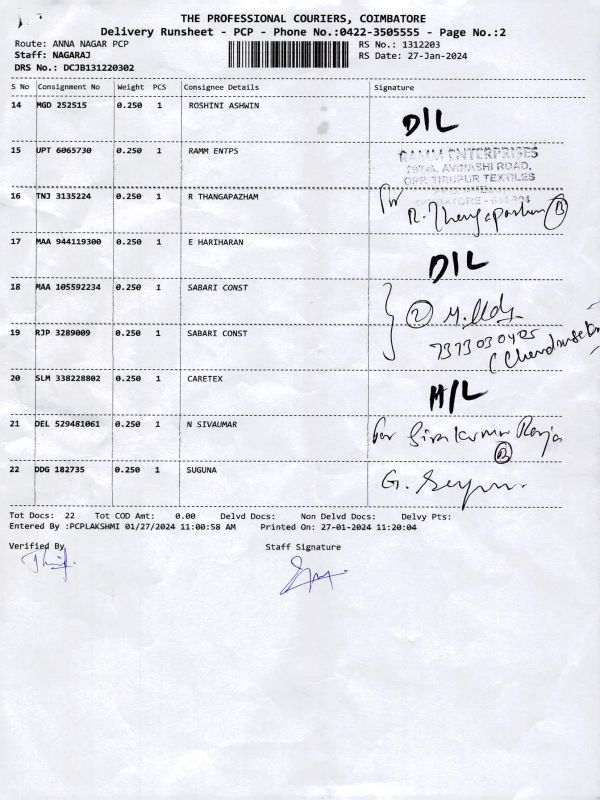 THE PROFESSIONAL COURIERS, COIMBATORE
Delivery Runsheet - PCP - Phone No.:0422-3505555 - Page No.:2
Route: ANNA NAGAR PCP RS No.: 1312203
Staff: NAGARAJ RS Date: 27-Jan-2024
DRS No.: DCJB131220302
S No Consignment No Weight PCS Consignee Details Signature
14 MGD 252515 0.250 1 ROSHINI ASHWIN
D/L
15 UPT 6065730 0.250 1 RAMM ENTPS
RAMM ENTERPRISES
AVINASHI ROAD,
OPP. TIRUPUR TEXTILES
16 TNJ 3135224 0.250 1 R THANGAPAZHAM
for
R. Thangapazham B
17 MAA 944119300 0.250 1 E HARIHARAN
D/L
18 MAA 105592234 0.250 1 SABARI CONST
2
19 RJP 3289009 0.250 1 SABARI CONST
7373030405
20 SLM 338228802 0.250 1 CARETEX
H/L
21 DEL 529481061 0.250 1 N SIVAUMAR
for Sivakumar
22 DDG 182735 0.250 1 SUGUNA
G.
Tot Docs: 22 Tot COD Amt: 0.00 Delvd Docs: Non Delvd Docs: Delvy Pts:
Entered By :PCPLAKSHMI 01/27/2024 11:00:58 AM Printed On: 27-01-2024 11:20:04
Verified By Staff Signature